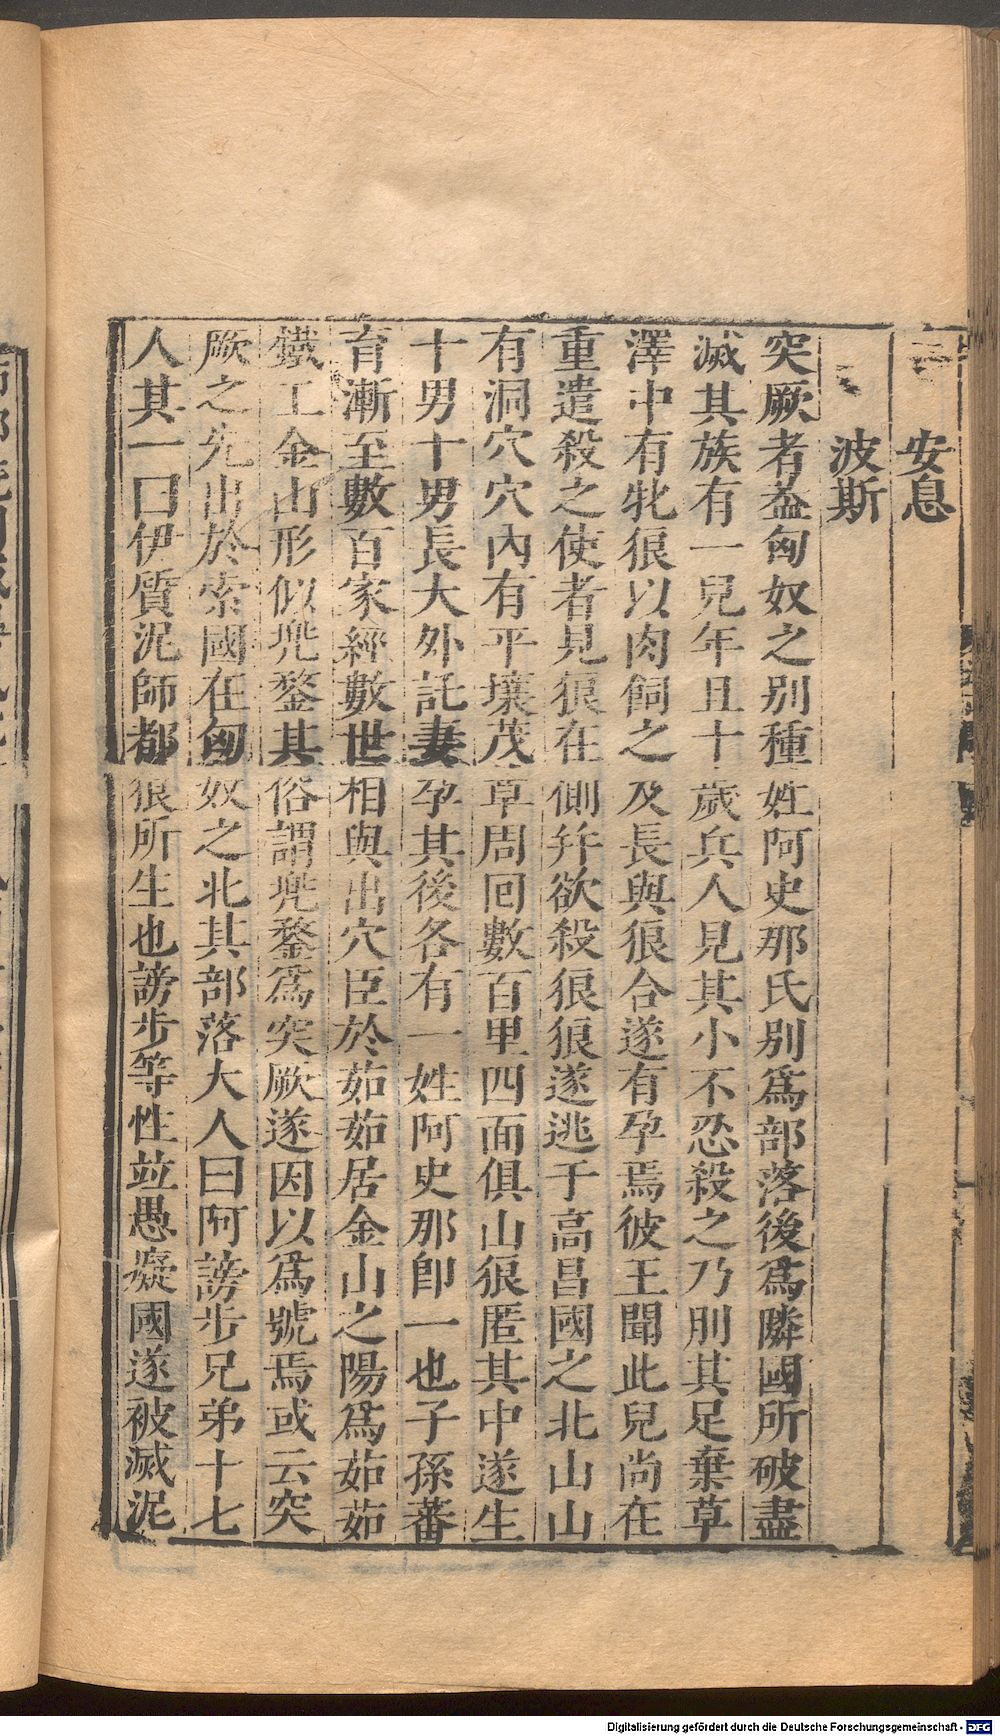 安息
波斯
突厥者葢匈奴之别種姓阿史那氏别爲部落後爲隣國所破盡
滅其族有一兒年且十歲兵人見其小不忍殺之乃刖其足棄草
澤中有牝狼以肉飼之及長與狼合遂有孕焉彼王聞此兒尚在
重遣殺之使者見狼在側幷欲殺狼狼遂逃于高昌國之北山山
有洞穴穴內有平壤茂草周回數百里四面俱山狼匿其中遂生
十男十男長大外託妻孕其後各有一姓阿史那卽一也子孫蕃
育漸至數百家經數世相與出穴臣於茹茹居金山之陽爲茹茹
鐵工金山形似兠鍪其俗謂兠鍪爲突厥遂因以爲號焉或云突
厥之先出於索國在匈奴之北其部落大人曰阿謗步兄弟十七
人其一曰伊質泥師都狼所生也謗步等性竝愚癡國遂被滅泥
Digitalisierung gefördert durch die Deutsche Forschungsgemeinschaft - DFG